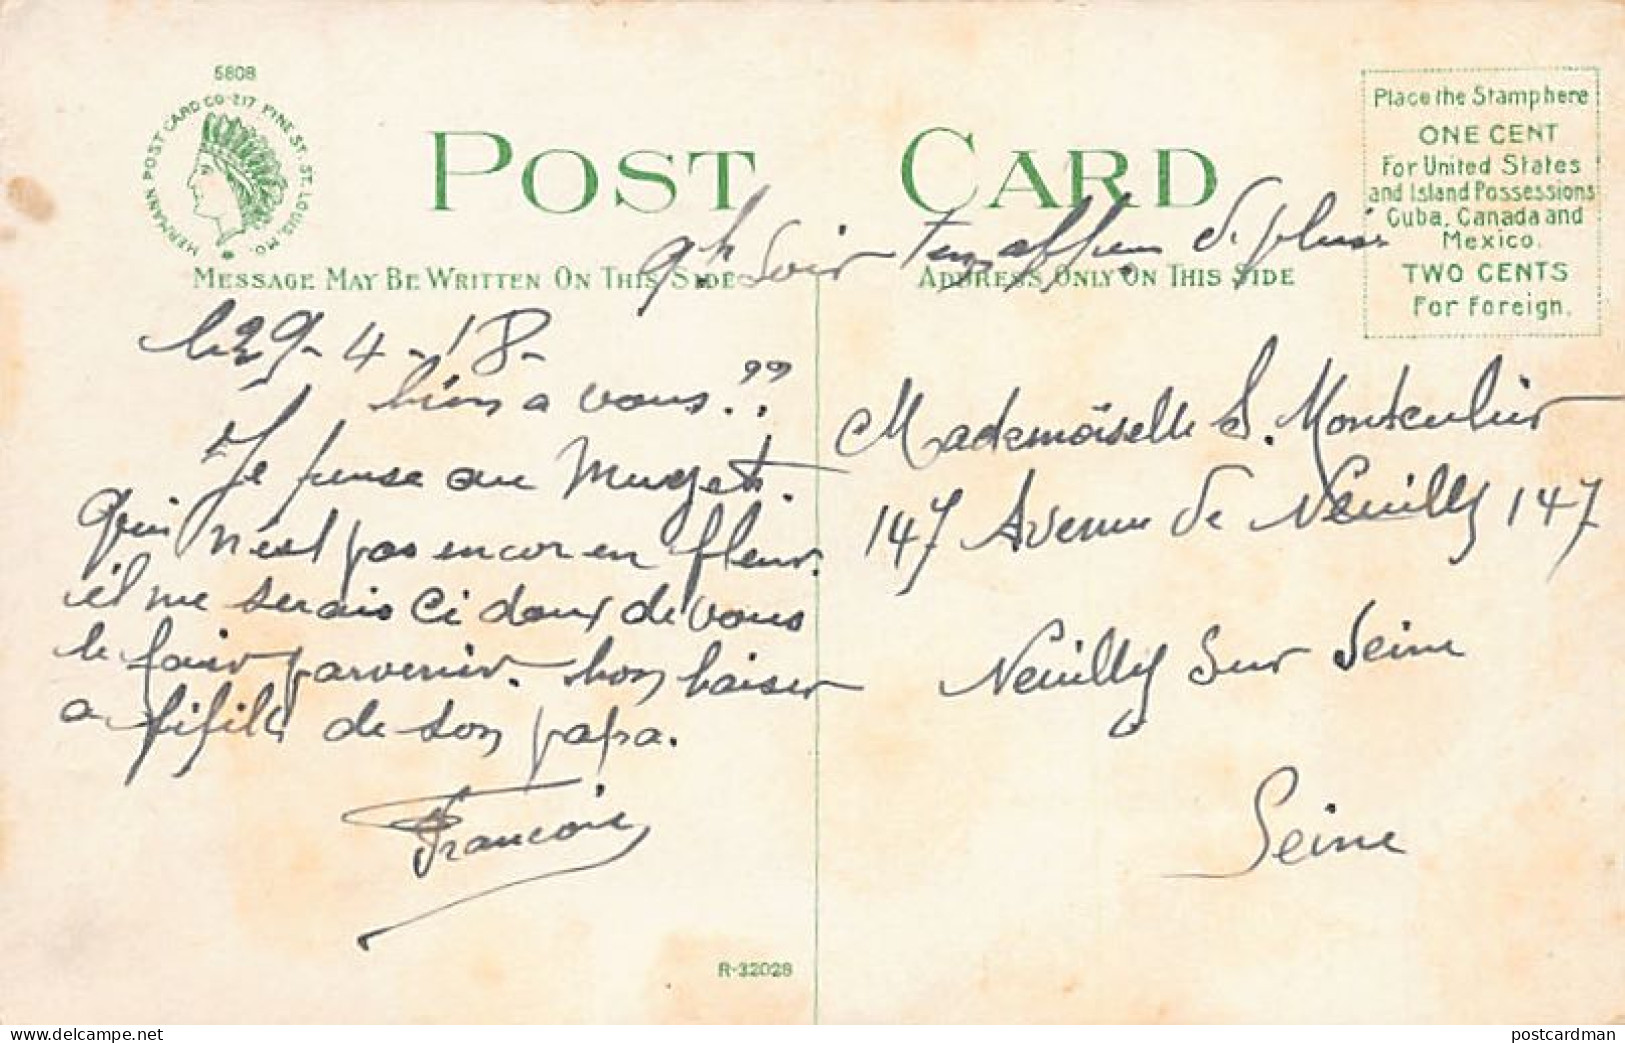 5808
HERMANN POST CARD CO 217 PINE ST. ST. LOUIS, MO.
POST CARD
Place the Stamp here
ONE CENT
For United States
and Island Possessions
Cuba, Canada and
Mexico.
TWO CENTS
For Foreign.
MESSAGE MAY BE WRITTEN ON THIS SIDE
ADDRESS ONLY ON THIS SIDE
9h Soir temps affreux de pluie
le 29-4-18-
bien a vous.??
Je pense au Muguet.
Qui n'est pas encor en fleur.
il me serais ci doux de vous
le fair parvenir. bon baiser
a fifille de son papa.
Francois
Mademoiselle S. Montculier
147 Avenue de Neuilly 147
Neuilly Sur Seine
Seine
R-32028
www.delcampe.net
postcardman